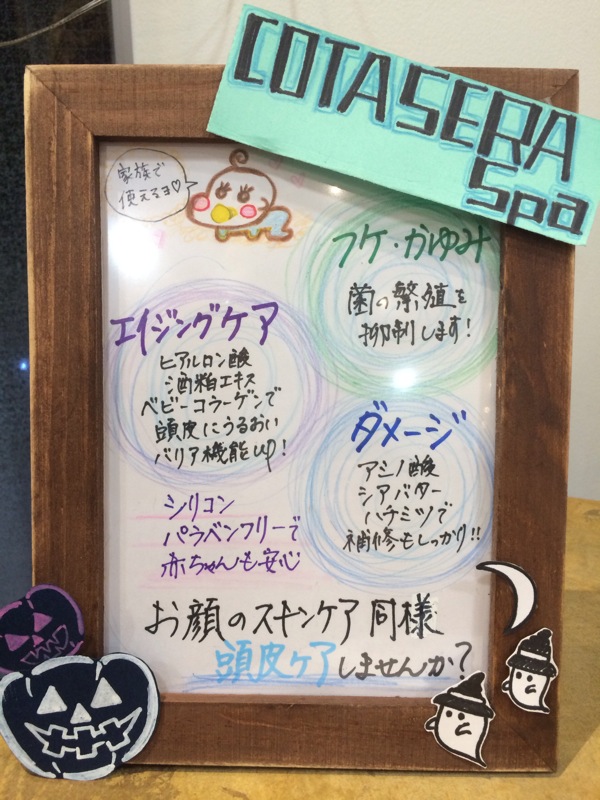 COTASERA
Spa
家族で
使えるヨ♡
フケ・かゆみ
菌の繁殖を
抑制します!
エイジングケア
ヒアルロン酸
酒粕エキス
ベビーコラーゲンで
頭皮にうるおい
バリア機能up!
ダメージ
アミノ酸
シアバター
ハチミツで
補修もしっかり!!
シリコン
パラベンフリーで
赤ちゃんも安心
お顔のスキンケア同様
頭皮ケアしませんか?